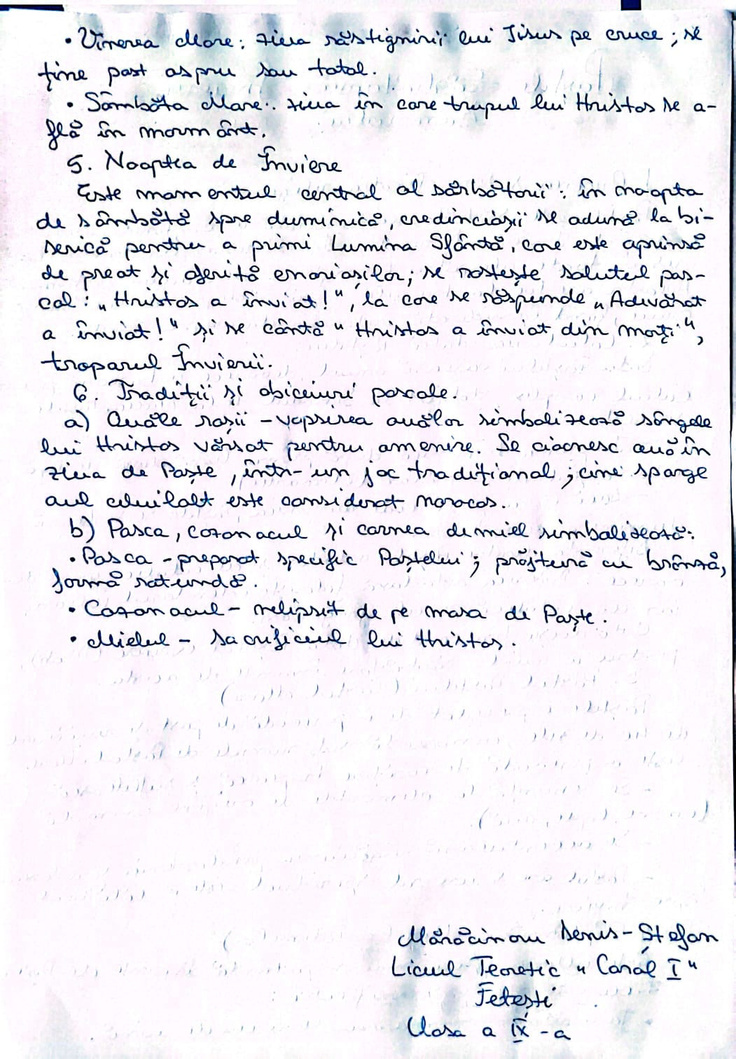 • Vinerea Mare: ziua răstignirii lui Iisus pe cruce; se
ține post aspru sau total.
• Sâmbăta Mare: ziua în care trupul lui Hristos se a-
flă în mormânt.
5. Noaptea de Înviere
Este momentul central al sărbătorii: în noapta
de sâmbătă spre duminică, credincioșii se adună la bi-
serică pentru a primi Lumina Sfântă, care este aprinsă
de preot și oferită enoriașilor; se rostește salutul pas-
cal: „Hristos a înviat!", la care se răspunde „Adevărat
a înviat!" și se cântă "Hristos a înviat din morți",
troparul Învierii.
6. Tradiții și obiceiuri pascale.
a) Ouăle roșii - vopsirea ouălor simbolizează sângele
lui Hristos vărsat pentru omenire. Se ciocnesc ouă în
ziua de Paște, într-un joc tradițional; cine sparge
oul celuilalt este considerat norocos.
b) Pasca, cozonacul și carnea de miel simbolizează:
• Pasca - preparat specific Paștelui; prăjitură cu brânză,
formă rotundă.
• Cozonacul - nelipsit de pe masa de Paște.
• Mielul - sacrificiul lui Hristos.
Mărăcinou Denis-Ștefan
Liceul Teoretic "Carol I"
Fetești
Clasa a IX-a